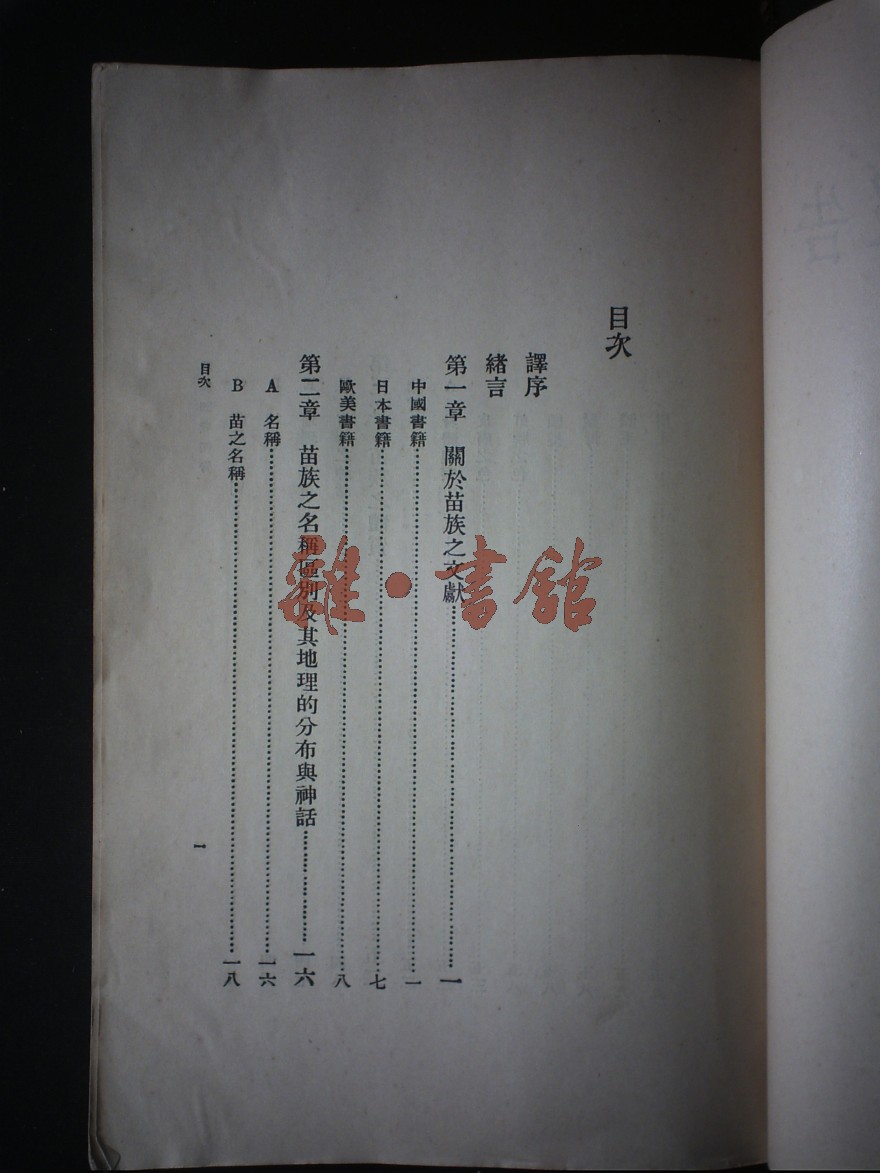 目次
譯序
緒言
第一章 關於苗族之文獻……一
中國書籍……一
日本書籍……七
歐美書籍……八
第二章 苗族之名稱區別及其地理的分布與神話……一六
A 名稱……一六
B 苗之名稱……一八
目次
一
雜·書館